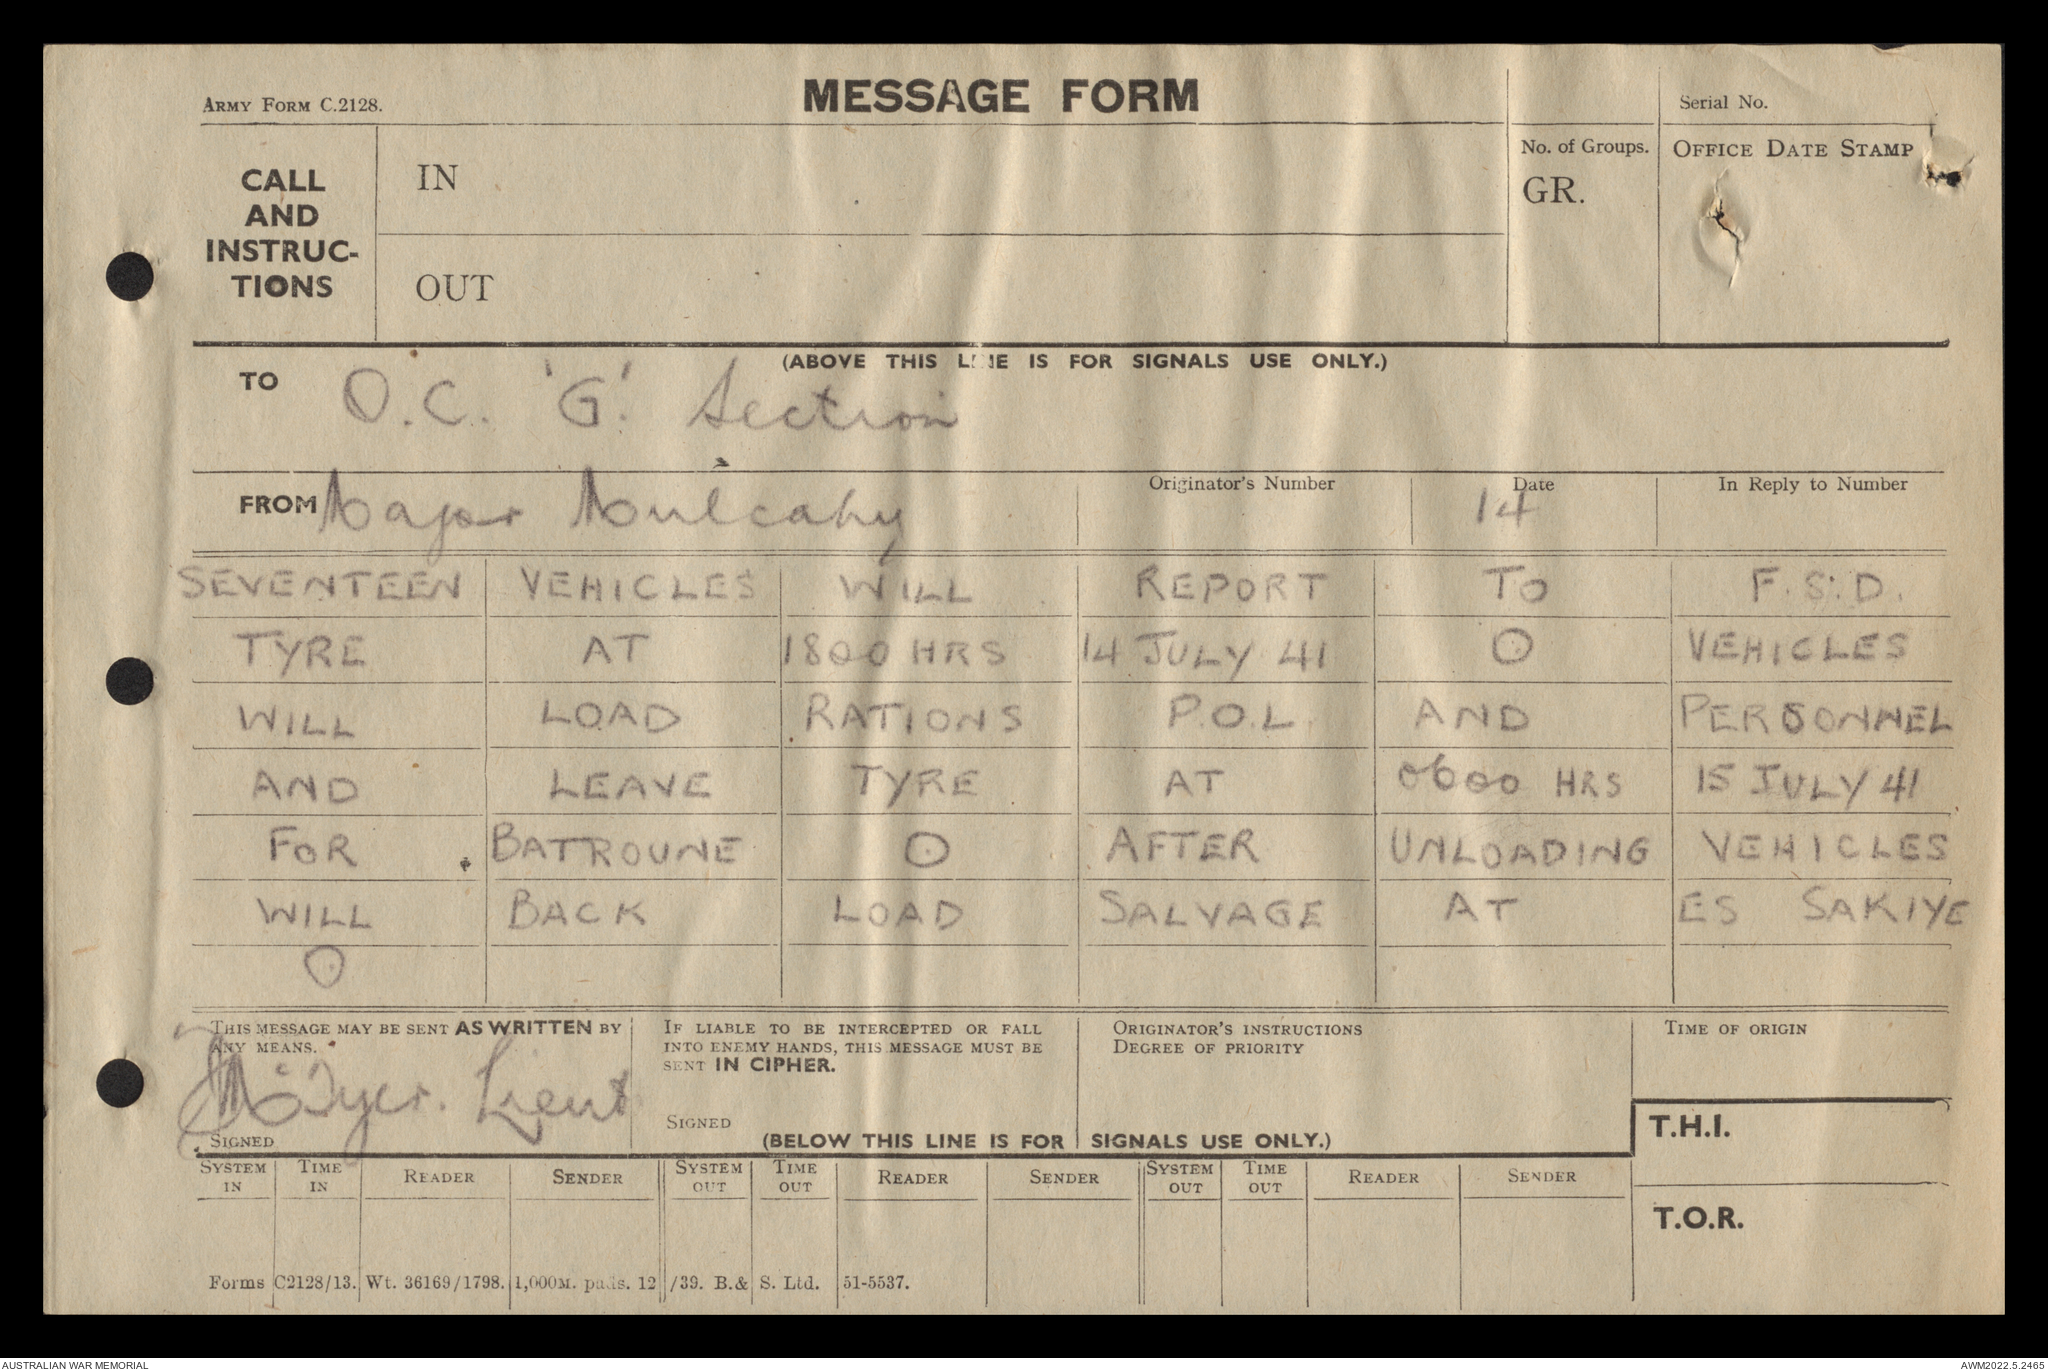 ARMY FORM C.2128.
MESSAGE FORM
Serial No.
CALL AND INSTRUC-TIONS
IN
OUT
No. of Groups.
GR.
OFFICE DATE STAMP
(ABOVE THIS LINE IS FOR SIGNALS USE ONLY.)
TO O.C. 'G' Section
FROM Major Mulcahy
Originator's Number
Date
14
In Reply to Number
SEVENTEEN VEHICLES WILL REPORT TO F.S.D.
TYRE AT 1800 HRS 14 JULY 41 O VEHICLES
WILL LOAD RATIONS P.O.L. AND PERSONNEL
AND LEAVE TYRE AT 0600 HRS 15 JULY 41
FOR BATROUNE O AFTER UNLOADING VEHICLES
WILL BACK LOAD SALVAGE AT ES SAKIYE
O
THIS MESSAGE MAY BE SENT AS WRITTEN BY
ANY MEANS.
Dyer. Lieut
SIGNED
IF LIABLE TO BE INTERCEPTED OR FALL
INTO ENEMY HANDS, THIS MESSAGE MUST BE
SENT IN CIPHER.
SIGNED
ORIGINATOR'S INSTRUCTIONS
DEGREE OF PRIORITY
TIME OF ORIGIN
(BELOW THIS LINE IS FOR SIGNALS USE ONLY.)
T.H.I.
T.O.R.
SYSTEM IN TIME IN READER SENDER SYSTEM OUT TIME OUT READER SENDER SYSTEM OUT TIME OUT READER SENDER
Forms C2128/13. Wt. 36169/1798. 1,000M. pads. 12/39. B.& S. Ltd. 51-5537.
AUSTRALIAN WAR MEMORIAL
AWM2022.5.2465